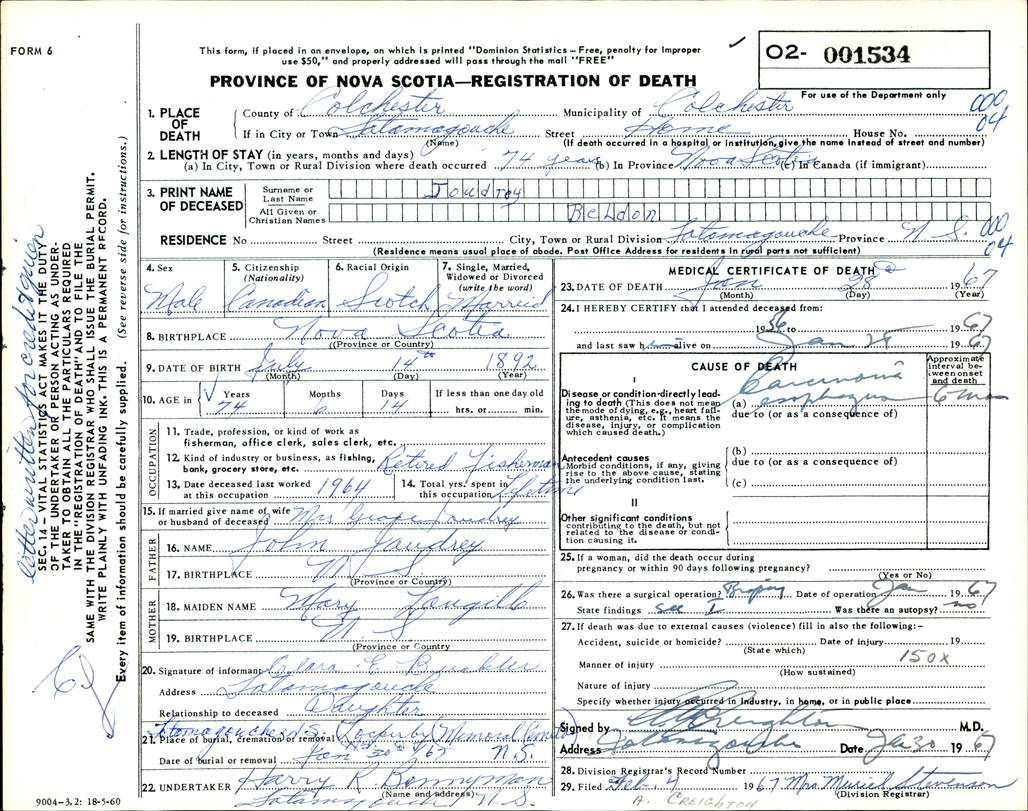 FORM 6
This form, if placed in an envelope, on which is printed "Dominion Statistics – Free, penalty for improper
use $50," and properly addressed will pass through the mail "FREE"
O2- 001534
PROVINCE OF NOVA SCOTIA—REGISTRATION OF DEATH
For use of the Department only
1. PLACE OF DEATH
County of Colchester Municipality of Colchester 000
If in City or Town Tatamagouche Street Home House No. 04
(Name) (If death occurred in a hospital or institution, give the name instead of street and number)
2. LENGTH OF STAY (in years, months and days)
(a) In City, Town or Rural Division where death occurred 74 years (b) In Province Nova Scotia (c) In Canada (if immigrant)
3. PRINT NAME OF DECEASED
Surname or Last Name Joudrey
All Given or Christian Names Beldon
RESIDENCE No Street City, Town or Rural Division Tatamagouche Province N.S. 000
04
(Residence means usual place of abode. Post Office Address for residents in rural parts not sufficient)
4. Sex
Male
5. Citizenship
(Nationality)
Canadian
6. Racial Origin
Scotch
7. Single, Married,
Widowed or Divorced
(write the word)
Marreid
8. BIRTHPLACE Nova Scotia
(Province or Country)
9. DATE OF BIRTH July 14th 1892
(Month) (Day) (Year)
10. AGE in Years Months Days If less than one day old
74 6 14 hrs. or min.
OCCUPATION
11. Trade, profession, or kind of work as
fisherman, office clerk, sales clerk, etc.
12. Kind of industry or business, as fishing,
bank, grocery store, etc. Retired Fisherman
13. Date deceased last worked
at this occupation 1964
14. Total yrs. spent in
this occupation Lifetime
15. If married give name of wife
or husband of deceased Mrs Grace Joudrey
FATHER
16. NAME John Joudrey
17. BIRTHPLACE N S
(Province or Country)
MOTHER
18. MAIDEN NAME Mary Langille
19. BIRTHPLACE N S
(Province or Country)
20. Signature of informant Clara E
Address Tatamagouche
Relationship to deceased Daughter
Tatamagouche N.S.
21. Place of burial, cremation or removal Lockerby Memorial
Date of burial or removal Jan 30th /67 N.S.
22. UNDERTAKER Harry R. Bonnyman
(Name and address)
Tatamagouche N.S.
9004–3.2: 18-5-60
MEDICAL CERTIFICATE OF DEATH
23. DATE OF DEATH Jan 28 1967
(Month) (Day) (Year)
24. I HEREBY CERTIFY that I attended deceased from:
1956 to 1967
and last saw him alive on Jan 28 1967
CAUSE OF DEATH
Approximate
interval be-
tween onset
and death
I
Disease or condition directly lead-
ing to death (This does not mean
the mode of dying, e.g., heart fail-
ure, asthenia, etc. It means the
disease, injury, or complication
which caused death.)
Carcinoma
(a) esophagus 6 mos
due to (or as a consequence of)
Antecedent causes
Morbid conditions, if any, giving
rise to the above cause, stating
the underlying condition last.
(b)
due to (or as a consequence of)
(c)
II
Other significant conditions
contributing to the death, but not
related to the disease or condi-
tion causing it.
25. If a woman, did the death occur during
pregnancy or within 90 days following pregnancy?
(Yes or No)
26. Was there a surgical operation? Biopsy Date of operation Jan 1967
State findings see I Was there an autopsy? no
27. If death was due to external causes (violence) fill in also the following:–
Accident, suicide or homicide? Date of injury 19
(State which) 150X
Manner of injury
(How sustained)
Nature of injury
Specify whether injury occurred in industry, in home, or in public place
Signed by Creighton M.D.
Address Tatamagouche Date Ja 30 1967
28. Division Registrar's Record Number
29. Filed Feb 4 1967 Mrs. Muriel Stevenson
(Division Registrar)
A. CREIGHTON
SEC. 14 – VITAL STATISTICS ACT MAKES IT THE DUTY
OF THE UNDERTAKER OR PERSON ACTING AS UNDER-
TAKER TO OBTAIN ALL THE PARTICULARS REQUIRED
IN THE "REGISTRATION OF DEATH" AND TO FILE THE
SAME WITH THE DIVISION REGISTRAR WHO SHALL ISSUE THE BURIAL PERMIT.
WRITE PLAINLY WITH UNFADING INK. THIS IS A PERMANENT RECORD.
Every item of information should be carefully supplied. (See reverse side for instructions.)
letter written for